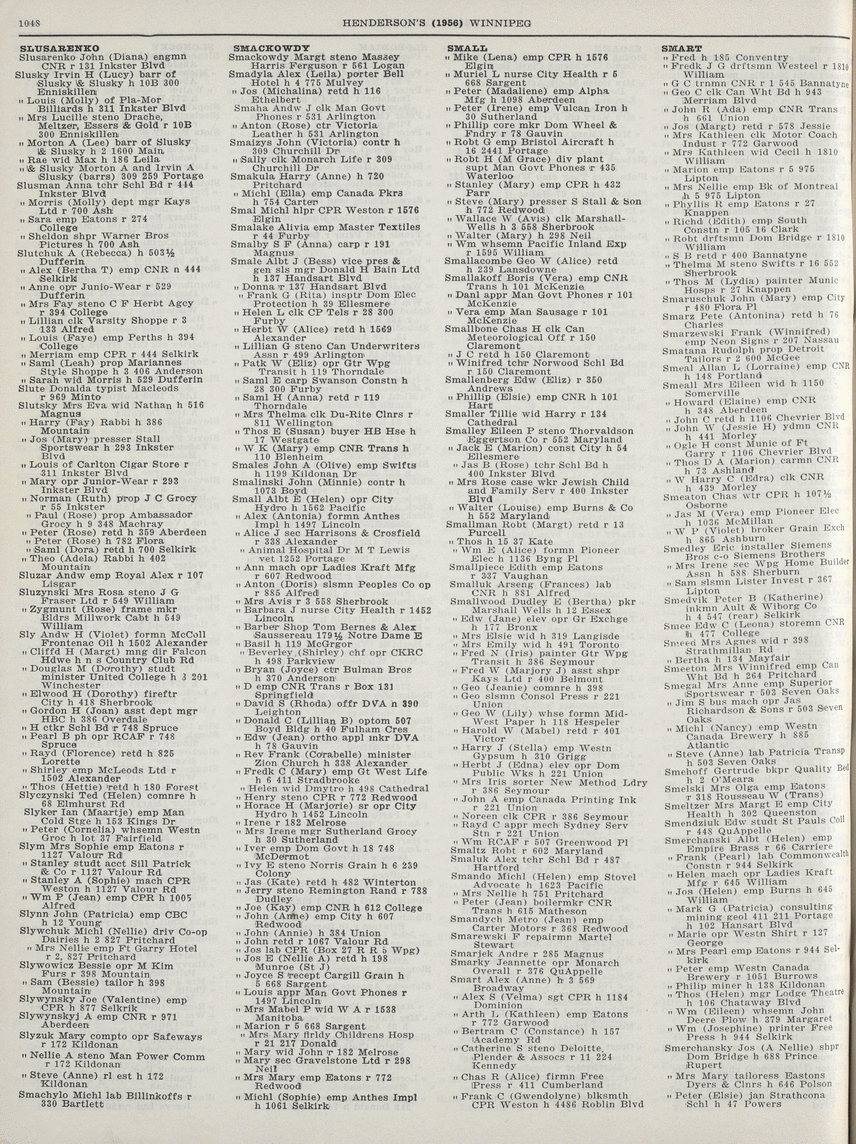 1048
HENDERSON'S (1956) WINNIPEG
SLUSARENKO
Slusarenko John (Diana) engmn
CNR r 131 Inkster Blvd
Slusky Irvin H (Lucy) barr of
Slusky & Slusky h 10B 300
Enniskillen
" Louis (Molly) of Pla-Mor
Billiards h 311 Inkster Blvd
" Mrs Lucille steno Drache,
Meltzer, Essers & Gold r 10B
300 Enniskillen
" Morton A (Lee) barr of Slusky
& Slusky h 2 1600 Main
" Rae wid Max h 186 Leila
" & Slusky Morton A and Irvin A
Slusky (barrs) 309 259 Portage
Slusman Anna tchr Schl Bd r 444
Inkster Blvd
" Morris (Molly) dept mgr Kays
Ltd r 700 Ash
" Sara emp Eatons r 274
College
" Sheldon shpr Warner Bros
Pictures h 700 Ash
Slutchuk A (Rebecca) h 503½
Dufferin
" Alex (Bertha T) emp CNR n 444
Selkirk
" Anne opr Junio-Wear r 529
Dufferin
" Mrs Fay steno C F Herbt Agcy
r 394 College
" Lillian clk Varsity Shoppe r 3
133 Alfred
" Louis (Faye) emp Perths h 394
College
" Merriam emp CPR r 444 Selkirk
" Saml (Leah) prop Mariannes
Style Shoppe h 3 406 Anderson
" Sarah wid Morris h 529 Dufferin
Slute Donalda typist Macleods
r 969 Minto
Slutsky Mrs Eva wid Nathan h 516
Magnus
" Harry (Fay) Rabbi h 386
Mountain
" Jos (Mary) presser Stall
Sportswear h 293 Inkster
Blvd
" Louis of Carlton Cigar Store r
311 Inkster Blvd
" Mary opr Junior-Wear r 293
Inkster Blvd
" Norman (Ruth) prop J C Grocy
r 55 Inkster
" Paul (Rose) prop Ambassador
Grocy h 9 348 Machray
" Peter (Rose) retd h 359 Aberdeen
" Peter (Rose) h 782 Flora
" Saml (Dora) retd h 700 Selkirk
" Theo (Adela) Rabbi h 402
Mountain
Sluzar Andw emp Royal Alex r 107
Lisgar
Sluzynski Mrs Rosa steno J G
Fraser Ltd r 549 William
" Zygmunt (Rose) frame mkr
Bldrs Millwork Cabt h 549
William
Sly Andw H (Violet) formn McColl
Frontenac Oil h 1502 Alexander
" Cliffd H (Margt) mng dir Falcon
Hdwe h n s Country Club Rd
" Douglas M (Dorothy) studt
minister United College h 3 291
Winchester
" Elwood H (Dorothy) fireftr
City h 418 Sherbrook
" Gordon H (Joan) asst dept mgr
HBC h 386 Overdale
" H ctkr Schl Bd r 748 Spruce
" Pearl B ph opr RCAF r 748
Spruce
" Rayd (Florence) retd h 825
Lorette
" Shirley emp McLeods Ltd r
1502 Alexander
" Thos (Hettie) retd h 180 Forest
Slyczynski Ted (Helen) comnre h
68 Elmhurst Rd
Slyker Ian (Maartje) emp Man
Cold Stge h 153 Kings Dr
" Peter (Cornelia) whsemn Westn
Groc h lot 37 Fairfield
Slym Mrs Sophie emp Eatons r
1127 Valour Rd
" Stanley studt acct Sill Patrick
& Co r 1127 Valour Rd
" Stanley A (Sophie) mach CPR
Weston h 1127 Valour Rd
" Wm P (Jean) emp CPR h 1005
Alfred
Slynn John (Patricia) emp CBC
h 12 Young
Slywchuk Michl (Nellie) driv Co-op
Dairies h 2 827 Pritchard
" Mrs Nellie emp Ft Garry Hotel
r 2, 827 Pritchard
Slywowicz Bessie opr M Kim
Furs r 398 Mountain
" Sam (Bessie) tailor h 398
Mountain
Slywynsky Joe (Valentine) emp
CPR h 877 Selkirk
Slywynskyj A emp CNR r 971
Aberdeen
Slyzuk Mary compto opr Safeways
r 172 Kildonan
" Nellie A steno Man Power Comm
r 172 Kildonan
" Steve (Anne) rl est h 172
Kildonan
Smachylo Michl lab Billinkoffs r
330 Bartlett
SMACKOWDY
Smackowdy Margt steno Massey
Harris Ferguson r 561 Logan
Smadyla Alex (Leila) porter Bell
Hotel h 4 775 Mulvey
" Jos (Michalina) retd h 116
Ethelbert
Smaha Andw J clk Man Govt
Phones r 531 Arlington
" Anton (Rose) ctr Victoria
Leather h 531 Arlington
Smaizys John (Victoria) contr h
309 Churchill Dr
" Sally clk Monarch Life r 309
Churchill Dr
Smakula Harry (Anne) h 720
Pritchard
" Michl (Ella) emp Canada Pkrs
h 754 Carter
Smal Michl hlpr CPR Weston r 1576
Elgin
Smalake Alivia emp Master Textiles
r 44 Furby
Smalby S F (Anna) carp r 191
Magnus
Smale Albt J (Bess) vice pres &
gen sls mgr Donald H Bain Ltd
h 137 Handsart Blvd
" Donna r 137 Handsart Blvd
" Frank G (Rita) insptr Dom Elec
Protection h 39 Ellesmere
" Helen L clk CP Tels r 28 300
Furby
" Herbt W (Alice) retd h 1569
Alexander
" Lillian G steno Can Underwriters
Assn r 499 Arlington
" Patk W (Eliz) opr Gtr Wpg
Transit h 119 Thorndale
" Saml E carp Swanson Constn h
28 300 Furby
" Saml H (Anna) retd r 119
Thorndale
" Mrs Thelma clk Du-Rite Clnrs r
811 Wellington
" Thos E (Susan) buyer HB Hse h
17 Westgate
" W K (Mary) emp CNR Trans h
110 Blenheim
Smales John A (Olive) emp Swifts
h 1199 Kildonan Dr
Smalinski John (Minnie) contr h
1073 Boyd
Small Albt E (Helen) opr City
Hydro h 1562 Pacific
" Alex (Antonia) formn Anthes
Impl h 1497 Lincoln
" Alice J sec Harrisons & Crosfield
r 338 Alexander
" Animal Hospital Dr M T Lewis
vet 1252 Portage
" Ann mach opr Ladies Kraft Mfg
r 607 Redwood
" Anton (Doris) slsmn Peoples Co op
r 885 Alfred
" Mrs Avis r 3 558 Sherbrook
" Barbara J nurse City Health r 1452
Lincoln
" Barber Shop Tom Bernes & Alex
Saussereau 179½ Notre Dame E
" Basil h 119 McGrgor
" Beverley (Shirley) chf opr CKRC
h 498 Parkview
" Bryan (Joyce) ctr Bulman Bros
h 370 Anderson
" D emp CNR Trans r Box 131
Springfield
" David S (Rhoda) offr DVA n 390
Leighton
" Donald C (Lillian B) optom 507
Boyd Bldg h 40 Fulham Cres
" Edw (Jean) ortho appl mkr DVA
h 78 Gauvin
" Rev Frank (Corabelle) minister
Zion Church h 338 Alexander
" Fredk C (Mary) emp Gt West Life
h 6 411 Stradbrooke
" Helen wid Dmytro h 498 Cathedral
" Henry steno CPR r 772 Redwood
" Horace H (Marjorie) sr opr City
Hydro h 1452 Lincoln
" Irene r 182 Melrose
" Mrs Irene mgr Sutherland Grocy
h 30 Sutherland
" Iver emp Dom Govt h 18 748
McDermot
" Ivy E steno Norris Grain h 6 239
Colony
" Jas (Kate) retd h 482 Winterton
" Jerry steno Remington Rand r 788
Dudley
" Joe (Kay) emp CNR h 612 College
" John (Anne) emp City h 607
Redwood
" John (Annie) h 384 Union
" John retd r 1067 Valour Rd
" Jos lab CPR (Box 27 R R 5 Wpg)
" Jos E (Nellie A) retd h 198
Munroe (St J)
" Joyce S recept Cargill Grain h
5 668 Sargent
" Louis appr Man Govt Phones r
1497 Lincoln
" Mrs Mabel P wid W A r 1538
Manitoba
" Marion r 5 668 Sargent
" Mrs Mary firldy Childrens Hosp
r 21 217 Donald
" Mary wid John r 182 Melrose
" Mary sec Gravelstone Ltd r 298
Neil
" Mrs Mary emp Eatons r 772
Redwood
" Michl (Sophie) emp Anthes Impl
h 1061 Selkirk
SMALL
" Mike (Lena) emp CPR h 1576
Elgin
" Muriel L nurse City Health r 5
668 Sargent
" Peter (Madaliene) emp Alpha
Mfg h 1098 Aberdeen
" Peter (Irene) emp Vulcan Iron h
30 Sutherland
" Phillip core mkr Dom Wheel &
Fndry r 78 Gauvin
" Robt G emp Bristol Aircraft h
16 2441 Portage
" Robt H (M Grace) div plant
supt Man Govt Phones r 435
Waterloo
" Stanley (Mary) emp CPR h 432
Parr
" Steve (Mary) presser S Stall & Son
h 772 Redwood
" Wallace W (Avis) clk Marshall-
Wells h 3 558 Sherbrook
" Walter (Mary) h 298 Neil
" Wm whsemn Pacific Inland Exp
r 1595 William
Smallacombe Geo W (Alice) retd
h 239 Lansdowne
Smallakoff Boris (Vera) emp CNR
Trans h 101 McKenzie
" Danl appr Man Govt Phones r 101
McKenzie
" Vera emp Man Sausage r 101
McKenzie
Smallbone Chas H clk Can
Meteorological Off r 150
Claremont
" J C retd h 150 Claremont
" Winifred tchr Norwood Schl Bd
r 150 Claremont
Smallenberg Edw (Eliz) r 350
Andrews
" Phillip (Elsie) emp CNR h 101
Hart
Smaller Tillie wid Harry r 134
Cathedral
Smalley Eileen P steno Thorvaldson
Eggertson Co r 552 Maryland
" Jack E (Marion) const City h 54
Ellesmere
" Jas B (Rose) tchr Schl Bd h
400 Inkster Blvd
" Mrs Rose case wkr Jewish Child
and Family Serv r 400 Inkster
Blvd
" Walter (Louise) emp Burns & Co
h 552 Maryland
Smallman Robt (Margt) retd r 13
Purcell
" Thos h 15 37 Kate
" Wm E (Alice) formn Pioneer
Elec h 1136 Byng Pl
Smallpiece Edith emp Eatons
r 337 Vaughan
Smalluk Arseng (Frances) lab
CNR h 881 Alfred
Smallwood Dudley E (Bertha) pkr
Marshall Wells h 12 Essex
" Edw (Jane) elev opr Gr Exchge
h 177 Bronx
" Mrs Elsie wid h 319 Langside
" Mrs Emily wid h 491 Toronto
" Fred N (Iris) painter Gtr Wpg
Transit h 386 Seymour
" Fred W (Marjory J) asst shpr
Kays Ltd r 400 Belmont
" Geo (Jeanie) comnre h 398
" Geo slsmn Consol Press r 221
Union
" Geo W (Lily) whse formn Mid-
West Paper h 118 Hespeler
" Harold W (Mabel) retd r 401
Victor
" Harry J (Stella) emp Westn
Gypsum h 310 Grigg
" Herbt J (Edna) elev opr Dom
Public Wks h 221 Union
" Mrs Iris sorter New Method Ldry
r 386 Seymour
" John A emp Canada Printing Ink
r 221 Union
" Noreen clk CPR r 386 Seymour
" Rayd C appr mech Sydney Serv
Stn r 221 Union
" Wm RCAF r 507 Greenwood Pl
Smaltz Robt r 602 Maryland
Smaluk Alex tchr Schl Bd r 487
Hartford
Smando Michl (Helen) emp Stovel
Advocate h 1623 Pacific
" Mrs Nellie h 751 Pritchard
" Peter (Jean) boilermkr CNR
Trans h 615 Matheson
Smandych Metro (Jean) emp
Carter Motors r 368 Redwood
Smarewski F repairmn Martel
Stewart
Smarjek Andre r 285 Magnus
Smarky Jeannette opr Monarch
Overall r 376 QuAppelle
Smart Alex (Anne) h 3 569
Broadway
" Alex S (Velma) sgt CPR h 1184
Dominion
" Arth L (Kathleen) emp Eatons
r 772 Garwood
" Bertram C (Constance) h 157
Academy Rd
" Catherine S steno Deloitte,
Plender & Assocs r 11 224
Kennedy
" Chas R (Alice) firmn Free
Press r 411 Cumberland
" Frank C (Gwendolyne) blksmth
CPR Weston h 4486 Roblin Blvd
SMART
" Fred h 185 Conventry
" Fredk J G drftsmn Westeel r 1810
William
" G C trnmn CNR r 1 545 Bannatyne
" Geo C clk Can Wht Bd h 943
Merriam Blvd
" John R (Ada) emp CNR Trans
h 661 Union
" Jos (Margt) retd r 578 Jessie
" Mrs Kathleen clk Motor Coach
Indust r 772 Garwood
" Mrs Kathleen wid Cecil h 1810
William
" Marion emp Eatons r 5 975
Lipton
" Mrs Nellie emp Bk of Montreal
h 5 975 Lipton
" Phyllis R emp Eatons r 27
Knappen
" Richd (Edith) emp South
Constn r 105 16 Clark
" Robt drftsmn Dom Bridge r 1810
William
" S B retd r 400 Bannatyne
" Thelma M steno Swifts r 16 552
Sherbrook
" Thos M (Lydia) painter Munic
Hosps r 27 Knappen
Smaruschuk John (Mary) emp City
r 480 Flora Pl
Smarz Pete (Antonina) retd h 76
Charles
Smarzewski Frank (Winnifred)
emp Neon Signs r 207 Nassau
Smatana Rudolph prop Detroit
Tailors r 2 600 McGee
Smeal Allan L (Lorraine) emp CNR
h 148 Portland
Smeall Mrs Eileen wid h 1150
Somerville
" Howard (Elaine) emp CNR
h 348 Aberdeen
" John C retd h 1106 Chevrier Blvd
" John W (Jessie H) ydmn CNR
h 441 Morley
" Ogle H const Munic of Ft
Garry r 1106 Chevrier Blvd
" Thos D A (Marion) carmn CNR
h 73 Ashland
" W Harry C (Edra) clk CNR
h 439 Morley
Smeaton Chas wtr CPR h 107½
Osborne
" Jas M (Vera) emp Pioneer Elec
h 1036 McMillan
" W P (Violet) broker Grain Exch
h 865 Ashburn
Smedley Eric installer Siemens
Bros c-o Siemens Brothers
" Mrs Irene sec Wpg Home Builder
Assn h 588 Sherburn
" Sam slsmn Lister Invest r 367
Lipton
Smedvik Peter B (Katherine)
inkmn Ault & Wiborg Co
h 4 547 (rear) Selkirk
Smee Edw C (Leona) storemn CNR
h 477 College
Smeed Mrs Agnes wid r 398
Strathmillan Rd
" Bertha h 134 Mayfair
Smeeton Mrs Winnifred emp Can
Wht Bd h 264 Pritchard
Smegal Mrs Anne emp Superior
Sportswear r 503 Seven Oaks
" Jim S bus mach opr Jas
Richardson & Sons r 503 Seven
Oaks
" Michl (Nancy) emp Westn
Canada Brewery h 885
Atlantic
" Steve (Anne) lab Patricia Transp
h 503 Seven Oaks
Smehoff Gertrude bkpr Quality Bed
h 2 O'Meara
Smelski Mrs Olga emp Eatons
r 318 Rousseau W (Trans)
Smeltzer Mrs Margt E emp City
Health h 302 Queenston
Smendziuk Edw studt St Pauls Coll
r 448 QuAppelle
Smerchanski Albt (Helen) emp
Empire Brass r 66 Carriere
" Frank (Pearl) lab Commonwealth
Constn r 944 Selkirk
" Helen mach opr Ladies Kraft
Mfg r 645 William
" Jos (Helen) emp Burns h 645
William
" Mark G (Patricia) consulting
mining geol 411 211 Portage
h 102 Hansart Blvd
" Marie opr Westn Shirt r 127
George
" Mrs Pearl emp Eatons r 944 Sel-
kirk
" Peter emp Westn Canada
Brewery r 1051 Burrows
" Philip miner h 138 Kildonan
" Thos (Helen) mgr Lodge Theatre
h 106 Chataway Blvd
" Wm (Eileen) whsemn John
Deere Plow h 379 Margaret
" Wm (Josephine) printer Free
Press h 944 Selkirk
Smerchansky Jos (A Nellie) shpr
Dom Bridge h 688 Prince
Rupert
" Mrs Mary tailoress Eastons
Dyers & Clnrs h 646 Polson
" Peter (Elsie) jan Strathcona
Schl h 47 Powers